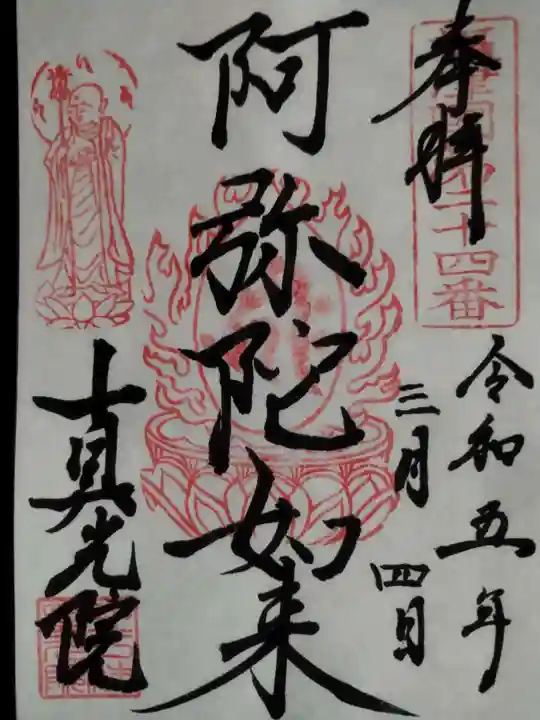 奉拝
二十四番
令和五年
三月四日
阿弥陀如来
真光院